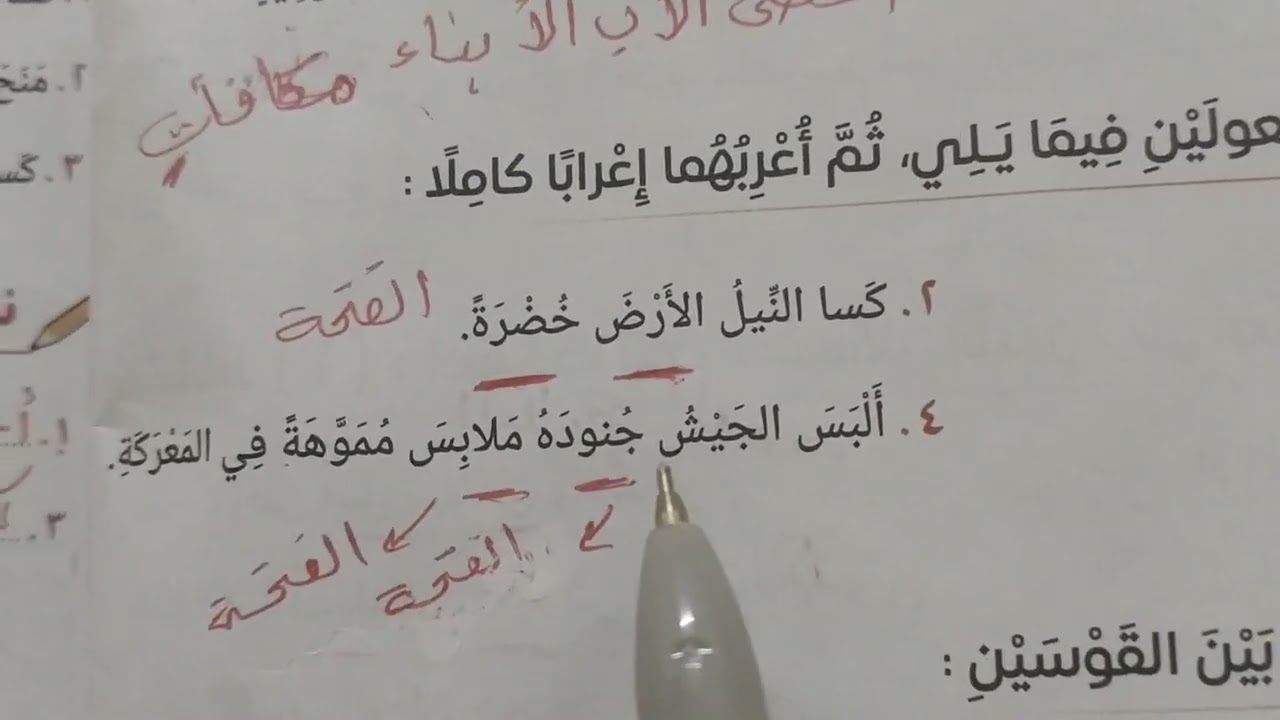 الأب الأبناء مكافآت
٢. مَنَحَ
عولَيْنِ فِيمَا يَـلِي، ثُمَّ أُعْرِبُهُما إِعْرابًا كامِلًا :
٣. كَسا
٢. كَسا النِّيلُ الأَرْضَ خُضْرَةً. الفَتَحة
٤. أَلْبَسَ الجَيْشُ جُنودَهُ مَلابِسَ مُمَوَّهَةً فِي المَعْرَكَةِ.
١.
الفتحة الفَتَحَة
٣.
بَيْنَ القَوْسَيْنِ :